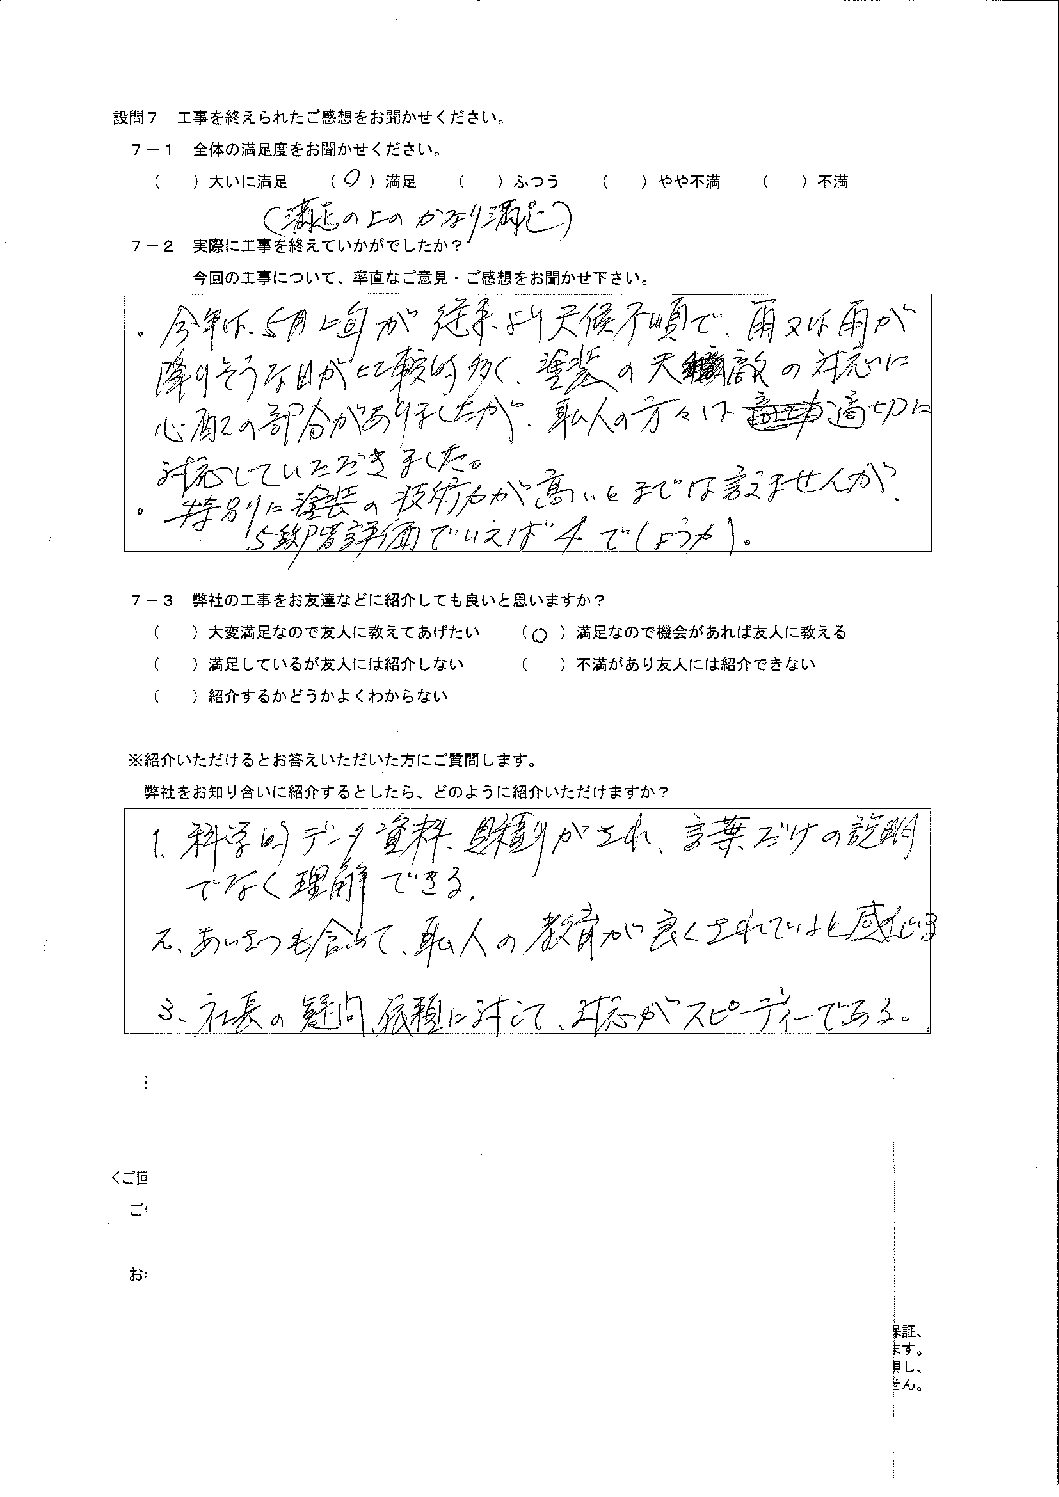 設問７　工事を終えられたご感想をお聞かせください。
７－１　全体の満足度をお聞かせください。
（　）大いに満足　（○）満足　（　）ふつう　（　）やや不満　（　）不満
（満足の上のかなり満足）
７－２　実際に工事を終えていかがでしたか？
今回の工事について、率直なご意見・ご感想をお聞かせ下さい。
。今年は、5月上旬が従来より天候不順で、雨又は雨が
降りそうな日が比較的多く、塗装の天敵の対応に
心配の部分がありましたが、職人の方々は適切に
対応していただきました。
。特別に塗装の技術力が高いとまでは言えませんが、
5段階評価でいえば4でしょうか。
７－３　弊社の工事をお友達などに紹介しても良いと思いますか？
（　）大変満足なので友人に教えてあげたい　（○）満足なので機会があれば友人に教える
（　）満足しているが友人には紹介しない　（　）不満があり友人には紹介できない
（　）紹介するかどうかよくわからない
※紹介いただけるとお答えいただいた方にご質問します。
弊社をお知り合いに紹介するとしたら、どのように紹介いただけますか？
1. 科学的データ資料、見積りがされ、言葉だけの説明
でなく理解できる。
2. あいさつも含めて、職人の教育が良くされていると感じる
3. 社長の疑問、依頼に対して、対応がスピーディーである。
＜ご回
ご
お
保証、
ます。
損し、
せん。